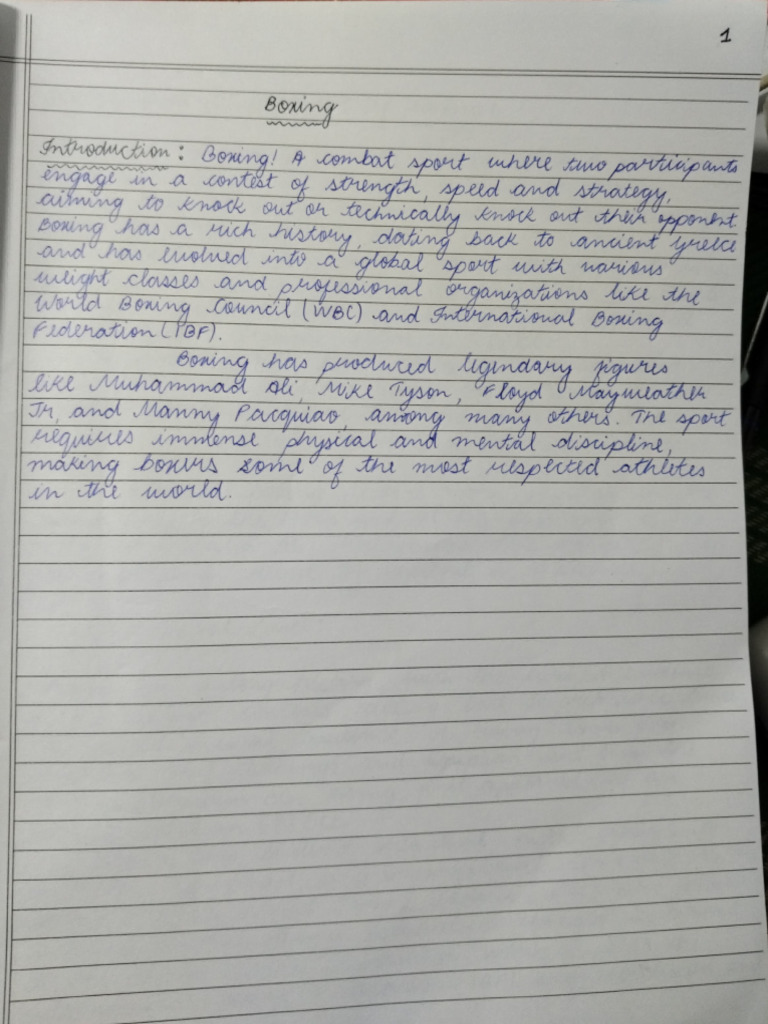 1
Boxing
Introduction: Boxing! A combat sport where two participants
engage in a contest of strength, speed and strategy,
aiming to knock out or technically knock out their opponent.
Boxing has a rich history, dating back to ancient Greece
and has evolved into a global sport with various
weight classes and professional organizations like the
World Boxing Council (WBC) and International Boxing
Federation (IBF).
Boxing has produced legendary figures
like Muhammad Ali, Mike Tyson, Floyd Mayweather
Jr, and Manny Pacquiao among many others. The sport
requires immense physical and mental discipline,
making boxers some of the most respected athletes
in the world.